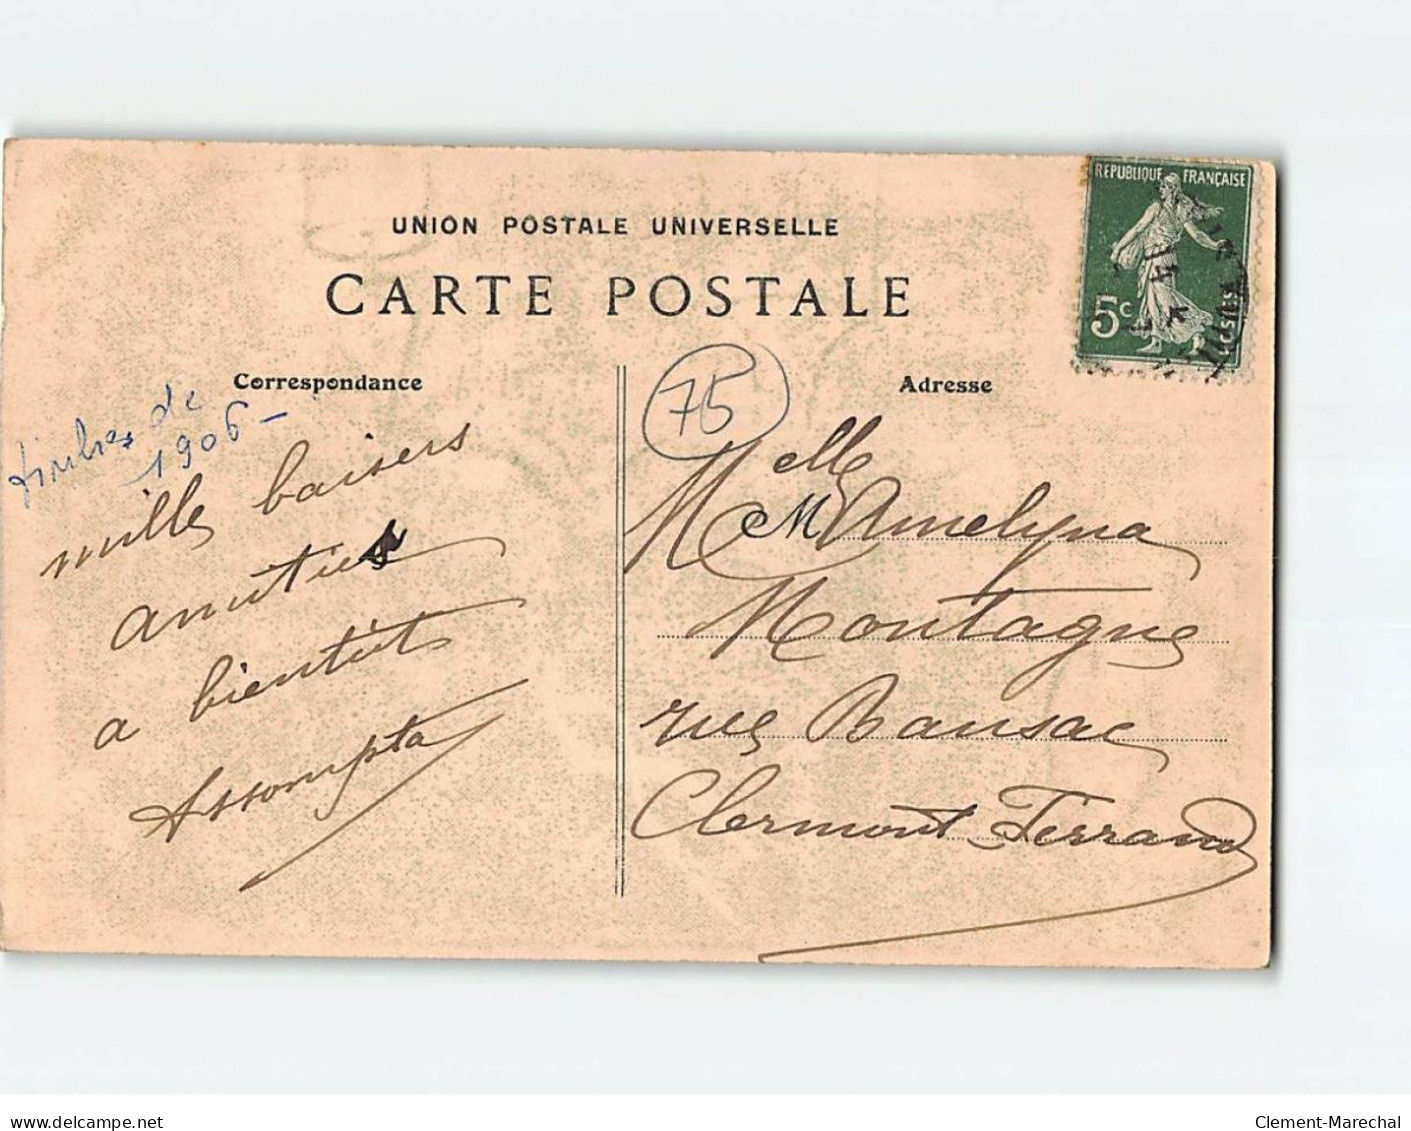 UNION POSTALE UNIVERSELLE
CARTE POSTALE
Correspondance
Adresse
REPUBLIQUE FRANÇAISE
5c
POSTES
timbres de
1906 -
75
mille baisers
amitiés
a bientôt
Assompta
Melle
M Amelyna
Montagne
rue Bansac
Clermont Ferrand
delcampe.net
Clement-Marechal